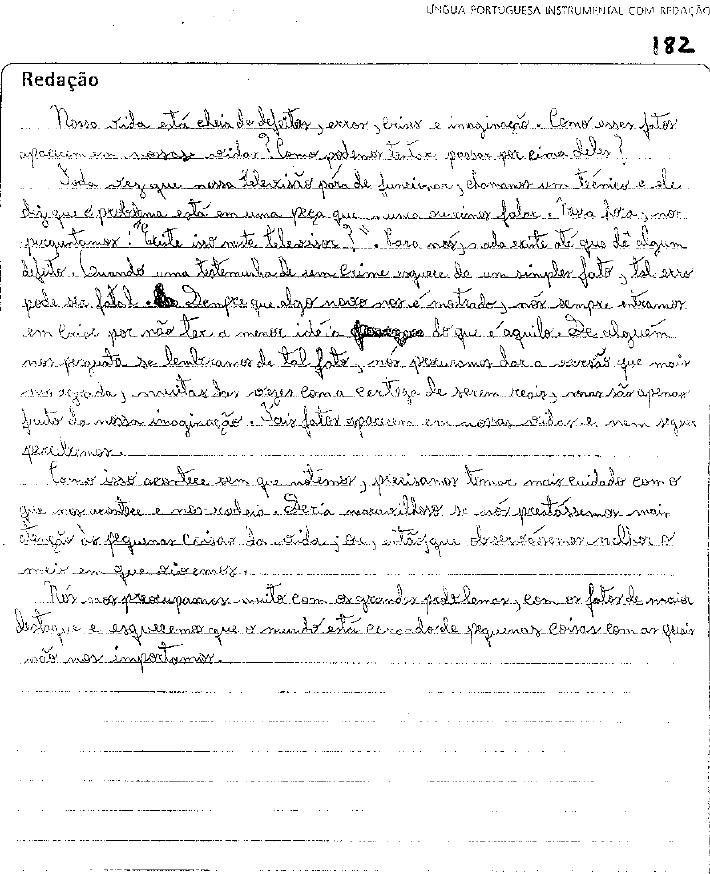 LÍNGUA PORTUGUESA INSTRUMENTAL COM REDAÇÃO
182
Redação
Nossa vida está cheia de defeitos, erros, crises e imaginação. Como esses fatos
aparecem em nossas vidas? Como podemos tentar passar por cima deles?
Toda vez que nossa televisão pára de funcionar, chamamos um técnico e ele
diz que o problema está em uma peça que nunca ouvimos falar. Para fora, nos
perguntamos: "Existe isso neste televisor?". Para nós, nada existe até que dê algum
defeito. Quando uma testemunha de um crime esquece de um simples fato, tal erro
pode ser fatal. Sempre que algo novo nos é mostrado, nós sempre entramos
em crise por não ter a menor idéia do que é aquilo. Se alguém
nos pergunta se lembramos de tal fato, nós procuramos dar a versão que mais
nos agrada, muitas das vezes com a certeza de serem reais, mas são apenas
fruto da nossa imaginação. Tais fatos aparecem em nossas vidas e nem sequer
percebemos.
Como isso acontece sem que notemos, precisamos tomar mais cuidado com o
que nos acontece e nos rodeia. Seria maravilhoso se nós prestássemos mais
atenção às pequenas coisas da vida, ou, então, que observássemos melhor o
meio em que vivemos.
Nós nos preocupamos muito com os grandes problemas, com os fatos de maior
destaque e esquecemos que o mundo está cercado de pequenas coisas com as quais
não nos importamos.